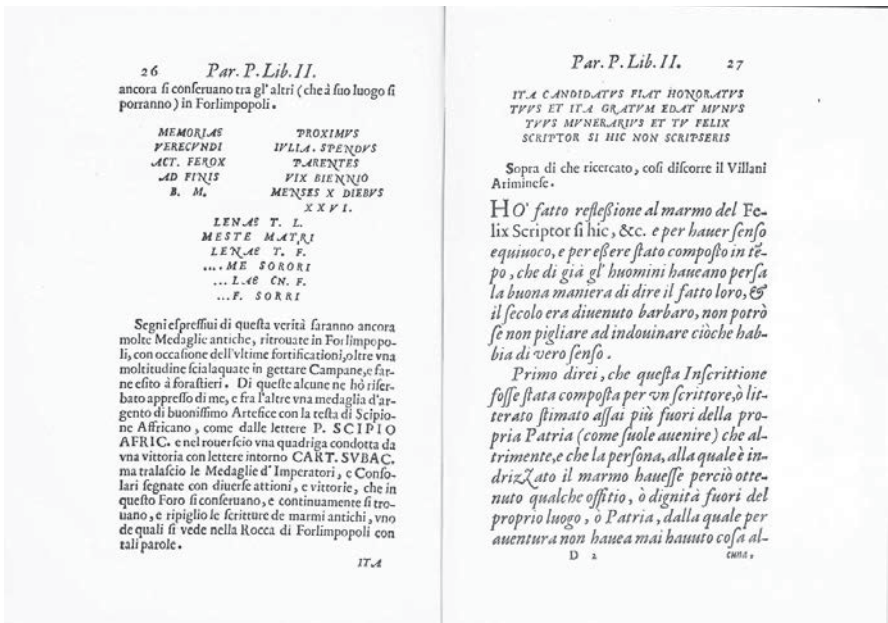 26 Par. P. Lib. II.
ancora ſi conſeruano tra gl' altri (che à ſuo luogo ſi
porranno) in Forlimpopoli.
MEMORIAE
VERECVNDI
ACT. FEROX
AD FINIS
B. M.
PROXIMVS
IVLIA. SPENDVS
PARENTES
VIX BIENNIO
MENSES X DIEBVS
XXVI.
LENAE T. L.
MESTE MATRI
LENAE T. F.
....ME SORORI
...LAE CN. F.
...F. SORRI
Segni eſpreſſiui di queſta verità ſaranno ancora
molte Medaglie antiche, ritrouate in Forlimpopo-
li, con occaſione dell'vltime fortificationi, oltre vna
moltitudine ſcialaquate in gettare Campane, e far-
ne eſito à foraſtieri. Di queſte alcune ne hò riſer-
bato appreſſo di me, e fra l'altre vna medaglia d'ar-
gento di buoniſſimo Artefice con la teſta di Scipio-
ne Affricano, come dalle lettere P. SCIPIO
AFRIC. e nel rouerſcio vna quadriga condotta da
vna vittoria con lettere intorno CART. SVBAC.
ma tralaſcio le Medaglie d'Imperatori, e Conſo-
lari ſegnate con diuerſe attioni, e vittorie, che in
queſto Foro ſi conſeruano, e continuamente ſi tro-
uano, e ripiglio le ſcritture de marmi antichi, vno
de quali ſi vede nella Rocca di Forlimpopoli con
tali parole.
ITA
Par. P. Lib. II. 27
ITA CANDIDATVS FIAT HONORATVS
TVVS ET ITA GRATVM EDAT MVNVS
TVVS MVNERARIVS ET TV FELIX
SCRIPTOR SI HIC NON SCRIPSERIS
Sopra di che ricercato, coſi diſcorre il Villani
Arimineſe.
HO' fatto refleßione al marmo del Fe-
lix Scriptor ſi hic, &c. e per hauer ſenſo
equiuoco, e per eßere ſtato compoſto in tē-
po, che di già gl' huomini haueano perſa
la buona maniera di dire il fatto loro, &
il ſecolo era diuenuto barbaro, non potrò
ſe non pigliare ad indouinare ciòche hab-
bia di vero ſenſo.
Primo direi, che queſta Inſcrittione
foſſe ſtata compoſta per vn ſcrittore, ò lit-
terato ſtimato aſſai più fuori della pro-
pria Patria (come ſuole auenire) che al-
trimente, e che la perſona, alla quale è in-
drizzato il marmo haueſſe perciò otte-
nuto qualche offitio, ò dignità fuori del
proprio luogo, ò Patria, dalla quale per
auentura non hauea mai hauuto coſa al-
D 2 cuna,